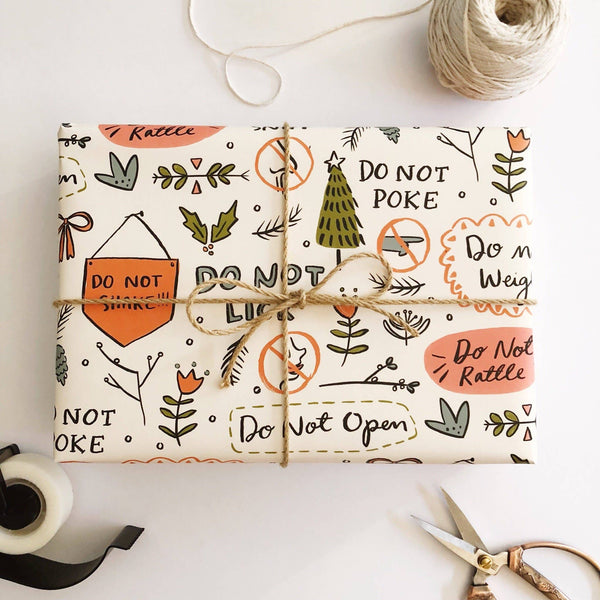 Rattle
DO NOT
POKE
Do
DO NOT
SHAKE!!!
DO NOT
LICK
Do Not
Rattle
DO NOT
POKE
Do Not Open